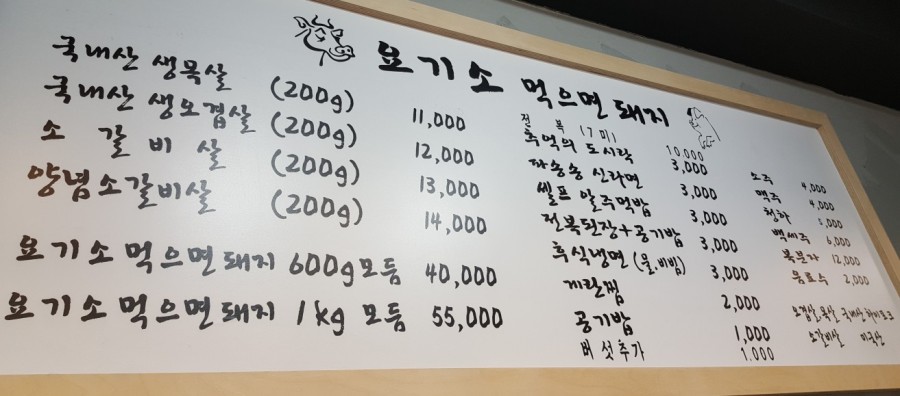 요기소 먹으면돼지
국내산 생목살 (200g) 11,000
국내산 생오겹살 (200g) 12,000
소 갈 비 살 (200g) 13,000
양념소갈비살 (200g) 14,000
요기소먹으면돼지 600g모듬 40,000
요기소먹으면돼지 1kg 모듬 55,000
전 복 (7미) 10,000
추억의 도시락 3,000
파송송 신라면 3,000
셀프 알주먹밥 3,000
전복된장+공기밥 3,000
후식냉면 (물,비빔) 3,000
계란찜 2,000
공기밥 1,000
버섯추가 1,000
소주 4,000
맥주 4,000
청하 5,000
백세주 6,000
복분자 12,000
음료수 2,000
오겹살,목살 국내산 하이포크
소갈비살 미국산